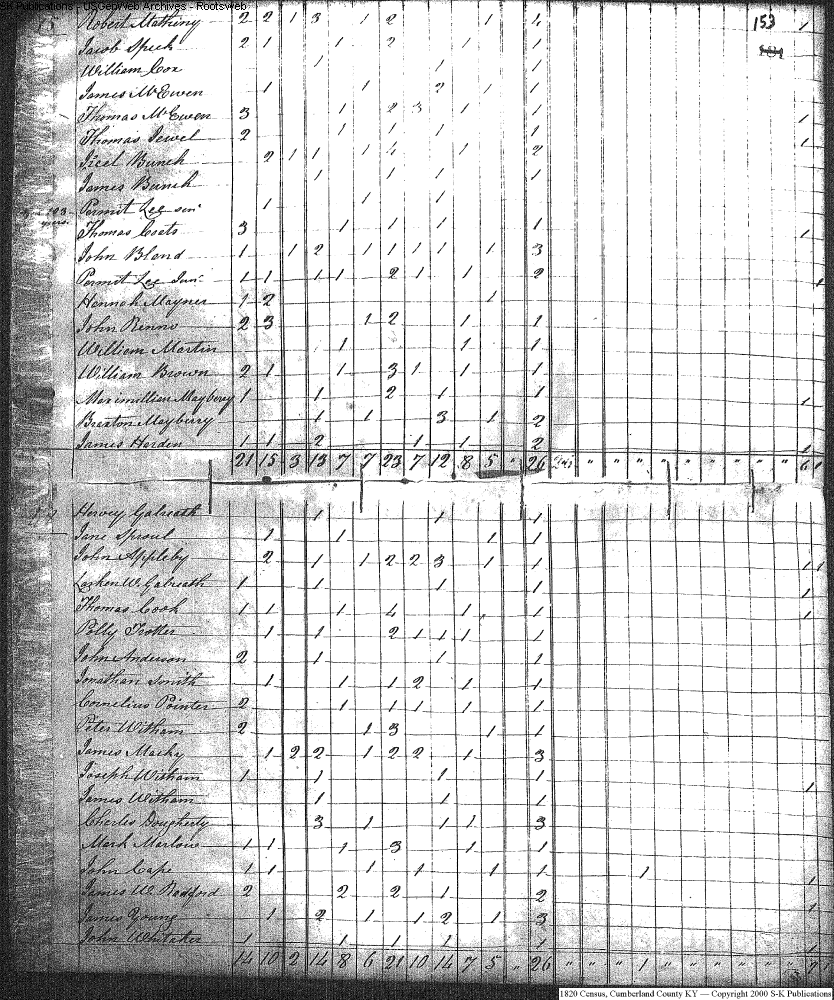 S-K Publications - USGenWeb Archives - Rootsweb
153
Robert Matheny 2 2 1 3 1 2 1 4 1
Jacob Speck 2 1 1 2 1 1
William Cox 1 1 1
James McEwen 1 1 2 1 1
Thomas McEwen 3 1 2 3 1 1 1
Thomas Jewel 2 1 1 1 1 1
Bunch 2 1 1 1 4 1 2
James Bunch 1 1 1 1
Permit Lee senr 1 1 1
Thomas Coats 3 1 1 1 1 1
John Bland 1 1 2 1 1 1 1 1 3
Permit Lee Junr 1 1 1 1 2 1 1 2 1
Hannah Mayner 1 2 1
John Renno 2 3 1 2 1 1
William Martin 1 1 1
William Brown 2 1 1 3 1 1 1
Maximillian Mayberry 1 1 2 1 1 1
Braxton Mayberry 1 1 3 1 2
James Harden 1 1 2 1 1 2 1
21 15 3 13 7 7 23 7 12 8 5 " 26 " " " " " " " " 6 1
Hervey Galreath 1 1 1
Jane Sproul 1 1 1 1
John Appleby 2 1 1 2 2 3 1 1 1 1
Larken W. Galreath 1 1 1 1 1
Thomas Cook 1 1 1 4 1 1 1
Polly Trotter 1 1 2 1 1 1 1
John Anderson 2 1 1 1
Jonathan Smith 1 1 1 2 1 1
Cornelius Pointer 2 1 1 1 1 1
Peter Witham 2 1 3 1 1
James Macky 1 2 2 1 2 2 1 3
Joseph Witham 1 1 1 1 1
James Witham 1 1 1
Charles Dougherty 3 1 1 1 3
Mark Marlow 1 1 1 3 1 1
John Cape 1 1 1 1 1 1 1 1
James W. Bedford 2 2 2 1 2 1
James Young 1 2 1 1 2 1 3 1
John Whitaker 1 1 1 1 1 1
14 10 2 14 8 6 21 10 14 7 5 " 26 " " " 1 " " " "
1820 Census, Cumberland County KY — Copyright 2000 S-K Publications